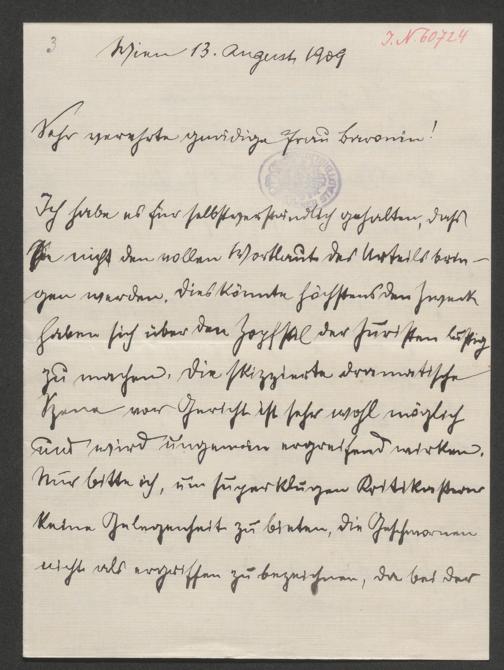 3
Wien 13. August 1909
I.N. 60724
Sehr verehrte gnädige Frau Baronin!
Ich habe es für selbstverständlich gehalten, daß
Sie nicht den vollen Wortlaut des Urteils brin-
gen werden. Dies könnte höchstens den Zweck
haben sich über den Zopfstil der Juristen lustig
zu machen. Die skizzierte dramatische
Szene vor Gericht ist sehr wohl möglich
und wird ungemein ergreifend wirken.
Nur bitte ich, um superklugen Kritikastern
keine Gelegenheit zu bieten, die Geschwornen
nicht als ergriffen zu bezeichnen, da bei der